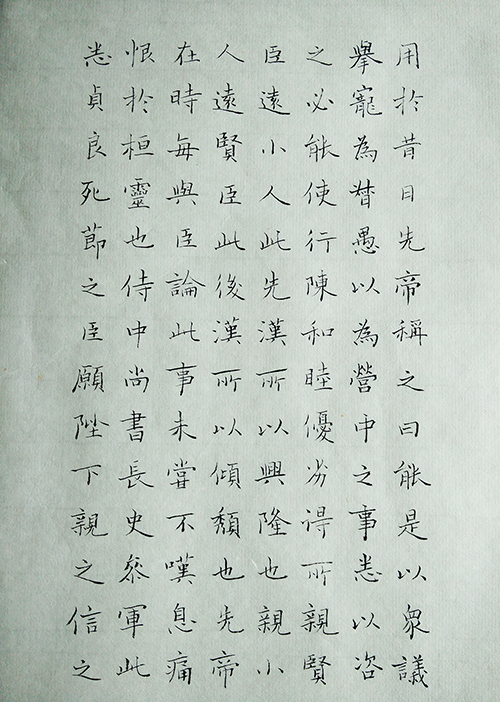 用於昔日先帝稱之曰能是以眾議
舉寵為督愚以為營中之事悉以咨
之必能使行陳和睦優劣得所親賢
臣遠小人此先漢所以興隆也親小
人遠賢臣此後漢所以傾頹也先帝
在時每與臣論此事未嘗不嘆息痛
恨於桓靈也侍中尚書長史參軍此
悉貞良死節之臣願陛下親之信之